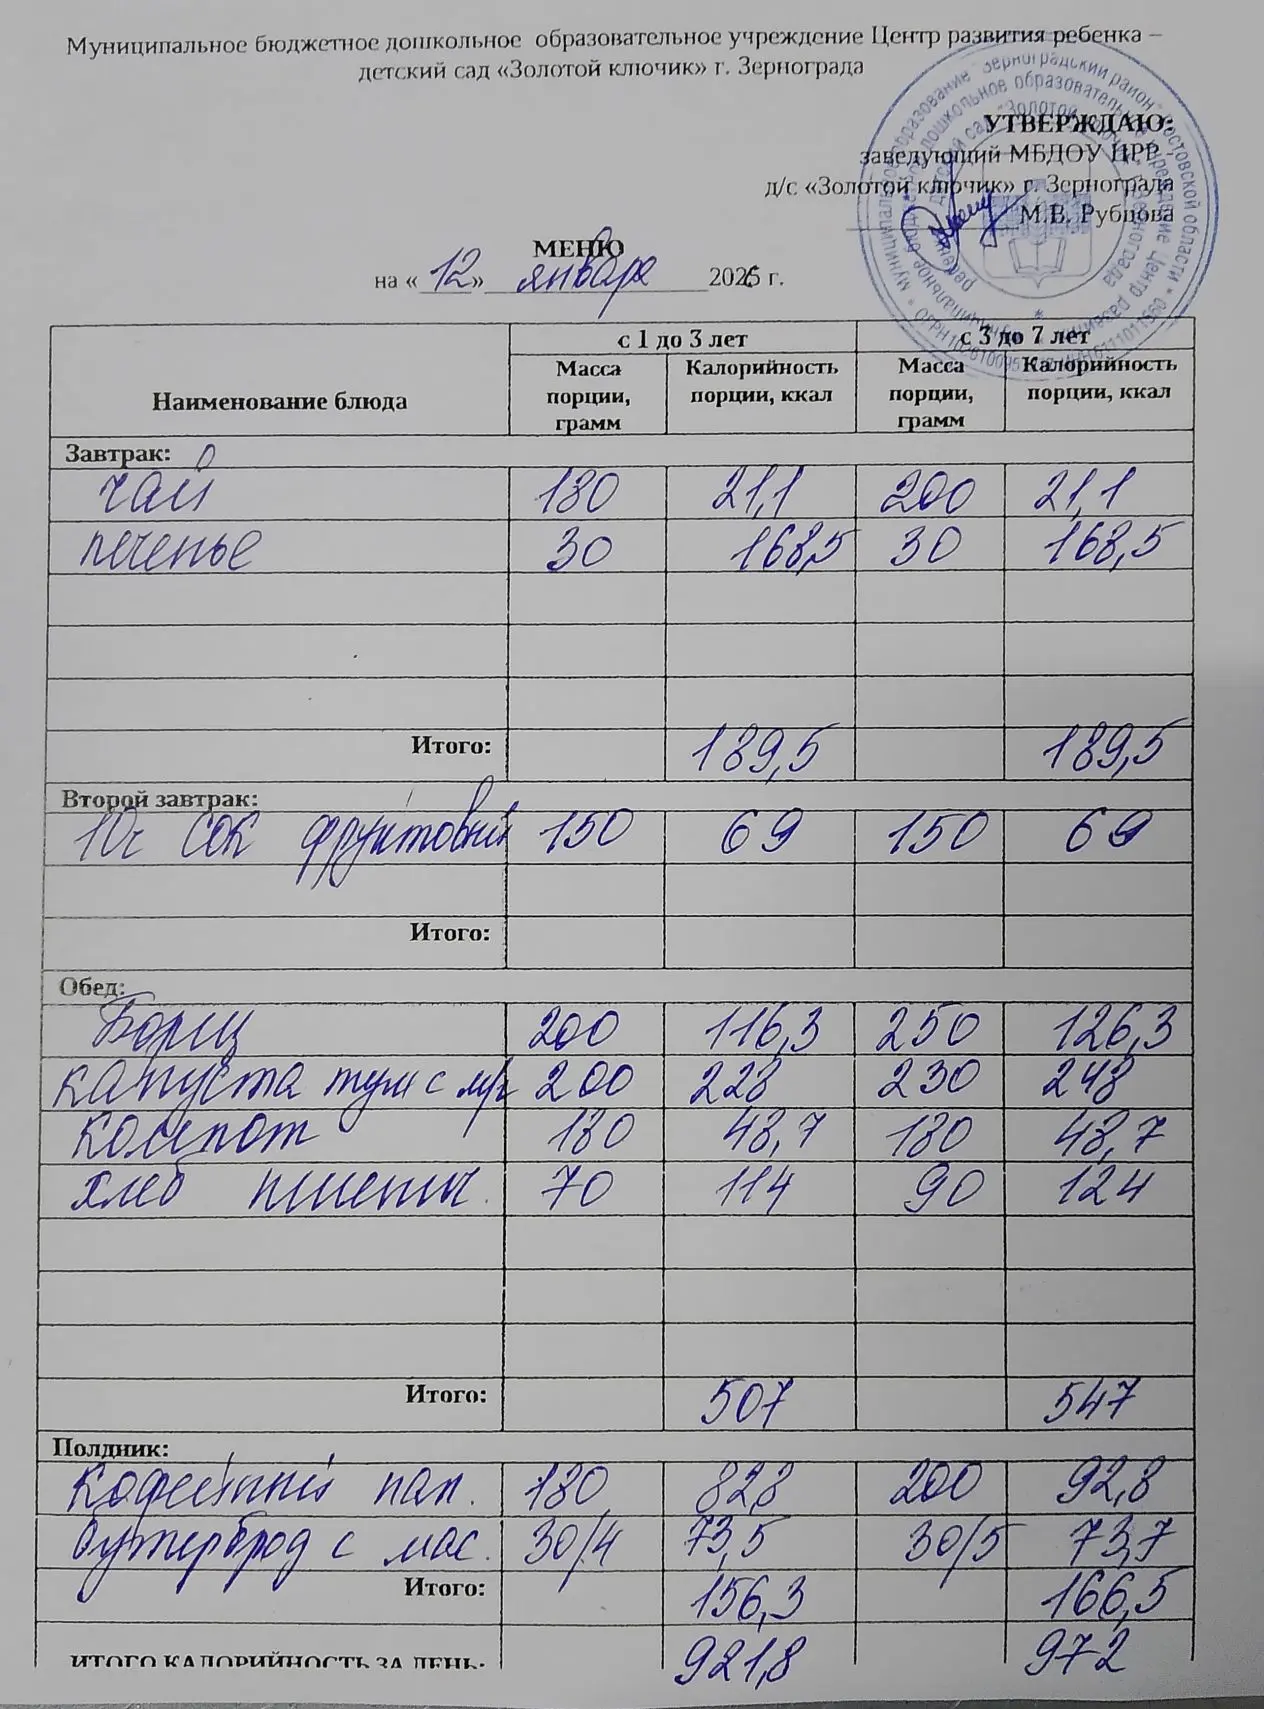 Муниципальное бюджетное дошкольное образовательное учреждение Центр развития ребенка –
детский сад «Золотой ключик» г. Зернограда
УТВЕРЖДАЮ:
заведующий МБДОУ ЦРР
д/с «Золотой ключик» г. Зернограда
М.В. Рубцова
МЕНЮ
на «12» января 2026 г.
с 1 до 3 лет с 3 до 7 лет
Наименование блюда Масса порции, грамм Калорийность порции, ккал Масса порции, грамм Калорийность порции, ккал
Завтрак:
чай 180 21,1 200 21,1
печенье 30 168,5 30 168,5
Итого: 189,5 189,5
Второй завтрак:
10ч сок фруктовый 150 69 150 69
Итого:
Обед:
Борщ 200 116,3 250 126,3
капуста туш с м/г 200 228 230 248
компот 180 48,7 180 48,7
хлеб пшенич. 70 114 90 124
Итого: 507 547
Полдник:
кофейный нап. 180 82,8 200 92,8
бутерброд с мас. 30/4 73,5 30/5 73,7
Итого: 156,3 166,5
ИТОГО КАЛОРИЙНОСТЬ ЗА ДЕНЬ: 921,8 972